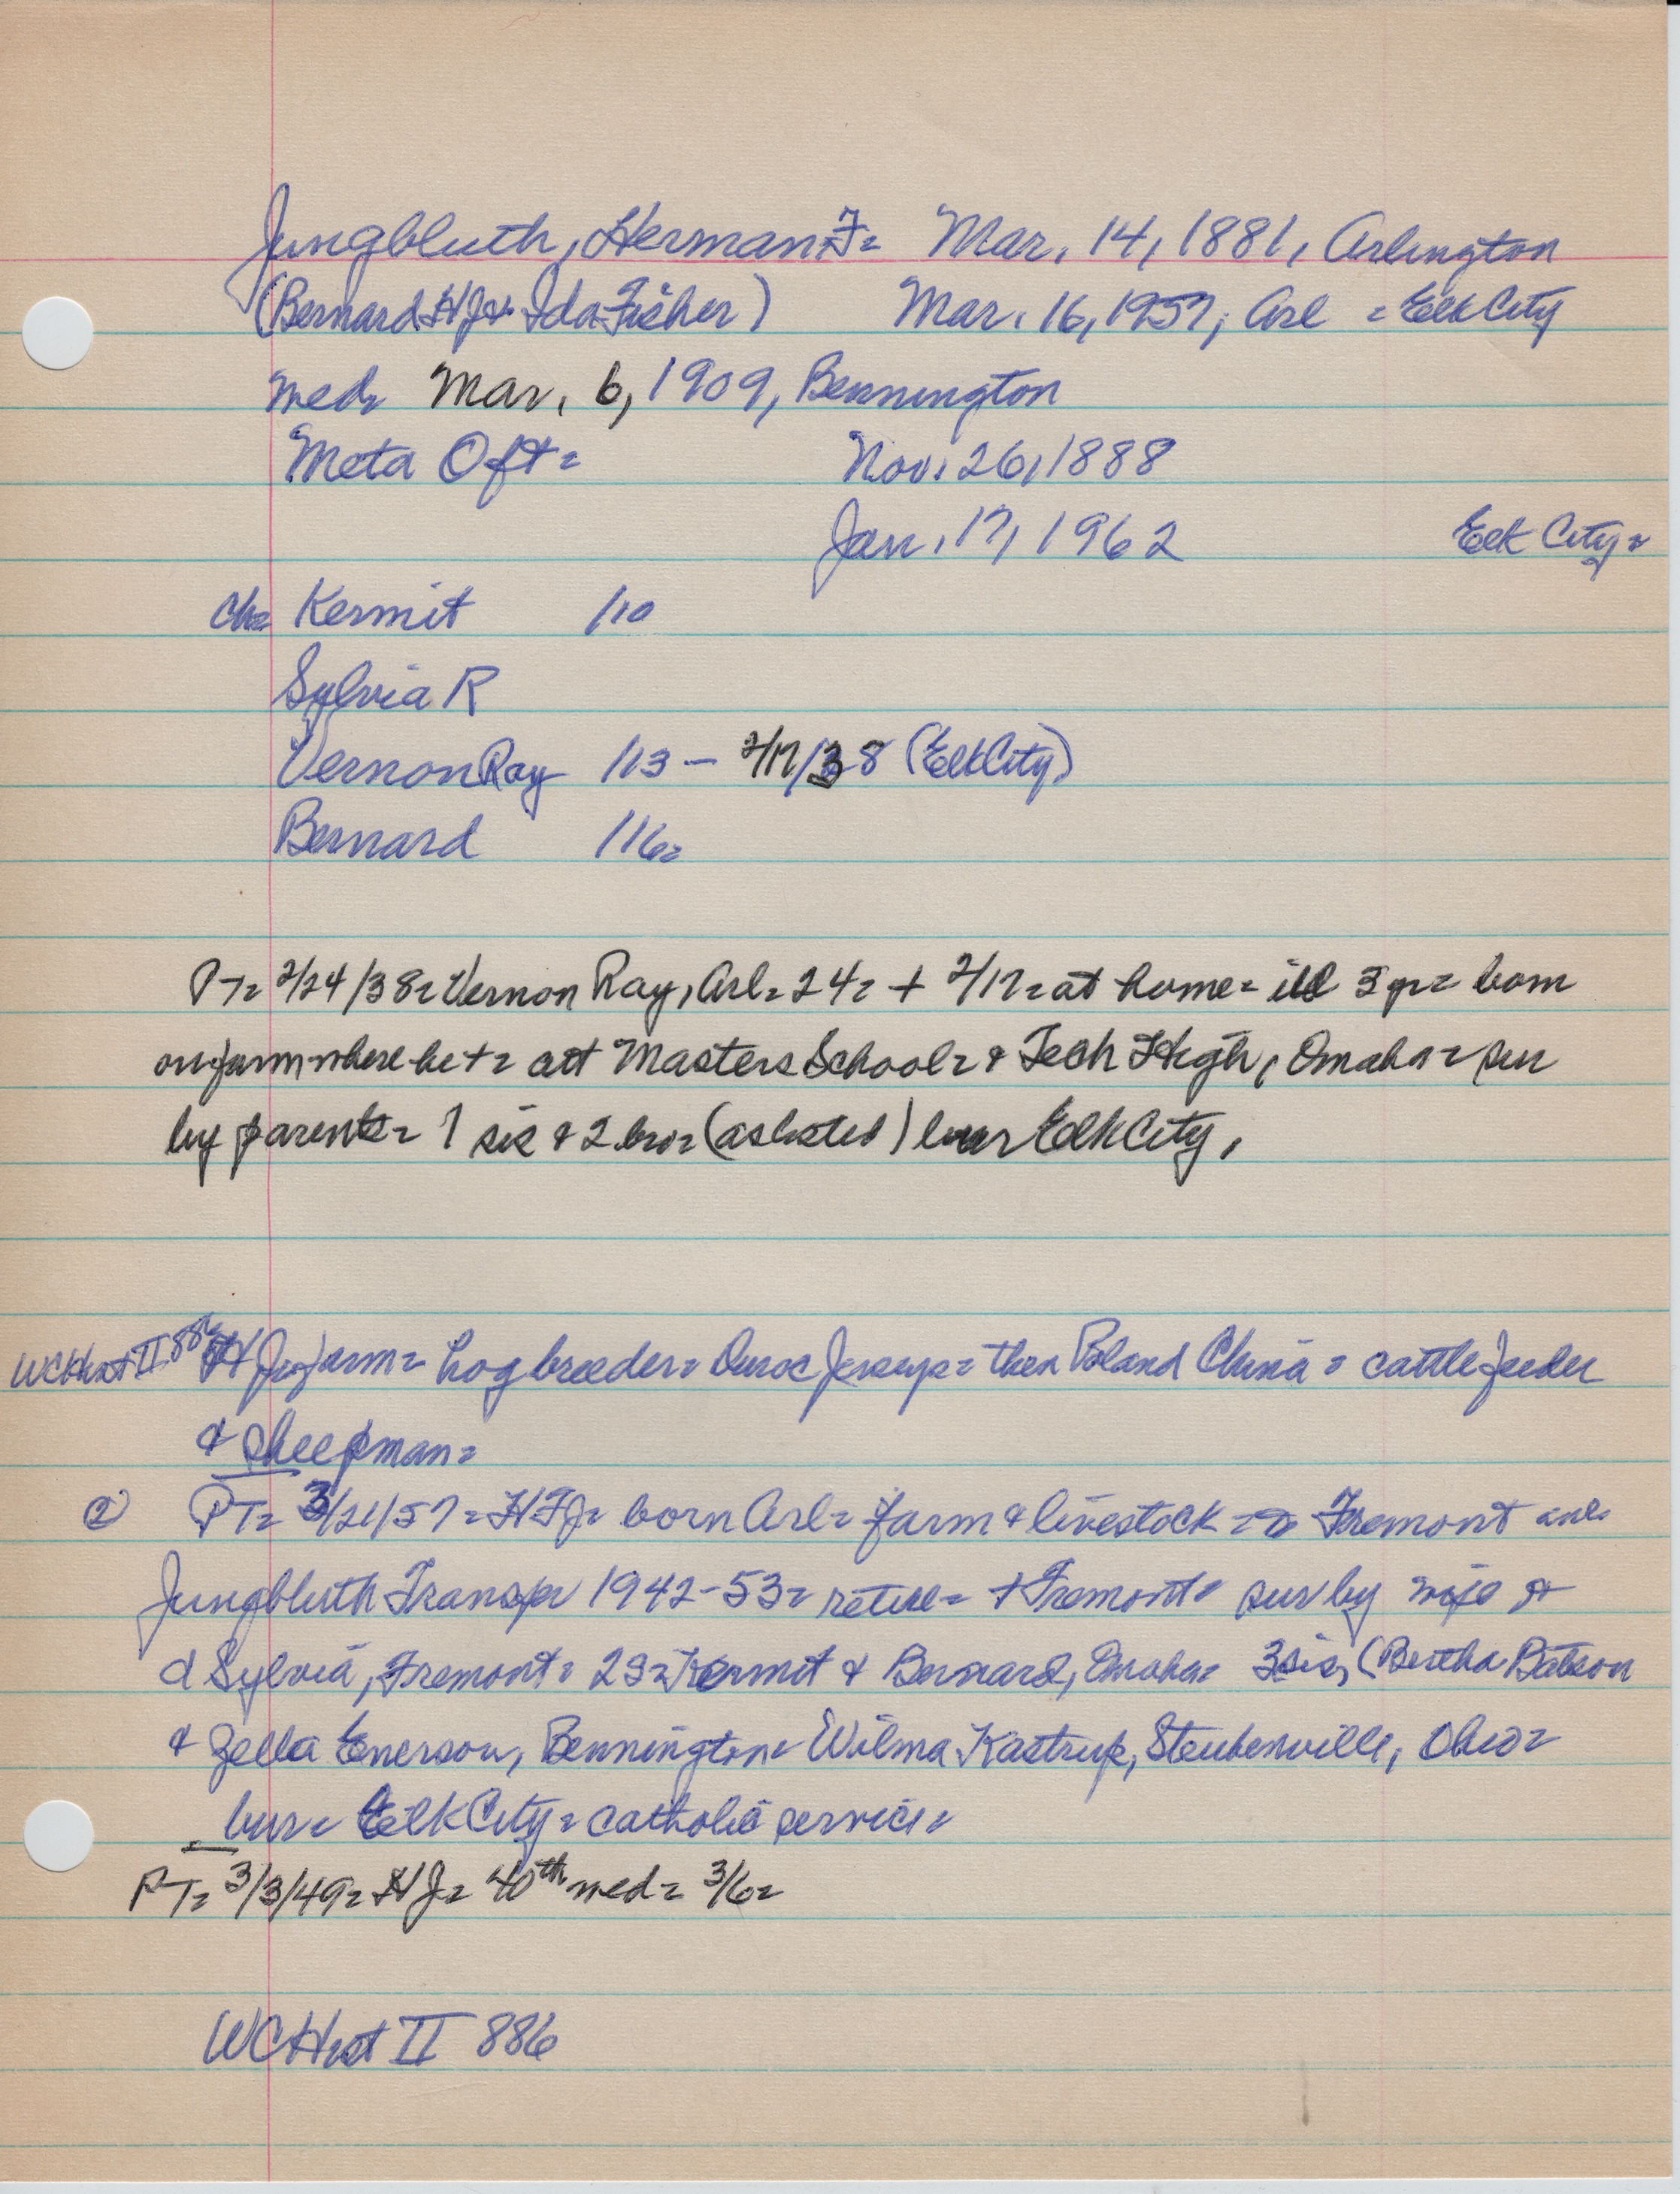 Jungbluth, Herman F= Mar. 14, 1881, Arlington
(Bernard H J + Ida Fisher) Mar. 16, 1957, Arl = Elk City
med= Mar. 6, 1909, Bennington
Meta Oft= Nov. 26, 1888
Jan. 17, 1962 Elk City=
Ch= Kermit /10
Sylvia R
Vernon Ray /13 - 2/17/38 (Elk City)
Bernard /16=
PT= 2/24/38= Vernon Ray, Arl= 24= + 2/17= at home= ill 3 yr= born
on farm where he += att Masters School= & Tech High, Omaha= sur
by parents= 1 sis & 2 bro= (as listed) bur Elk City.
WCHist II 886 HJ= farm= hog breeder= Duroc Jerseys= then Poland China= cattle feeder
& sheepman=
PT= 3/21/57= HFJ= born Arl= farm & livestock = Fremont
Jungbluth Transfer 1942-53= retire= + Fremont= sur by wife &
d Sylvia, Fremont= 2s= Kermit & Bernard, Omaha= 3 sis, (Bertha Batson
& Zella Enerson, Bennington= Wilma Kastrup, Steubenville, Ohio=
bur= Elk City= catholic service=
PT= 3/3/49= HJ= 40th wed= 3/6=
WCHist II 886